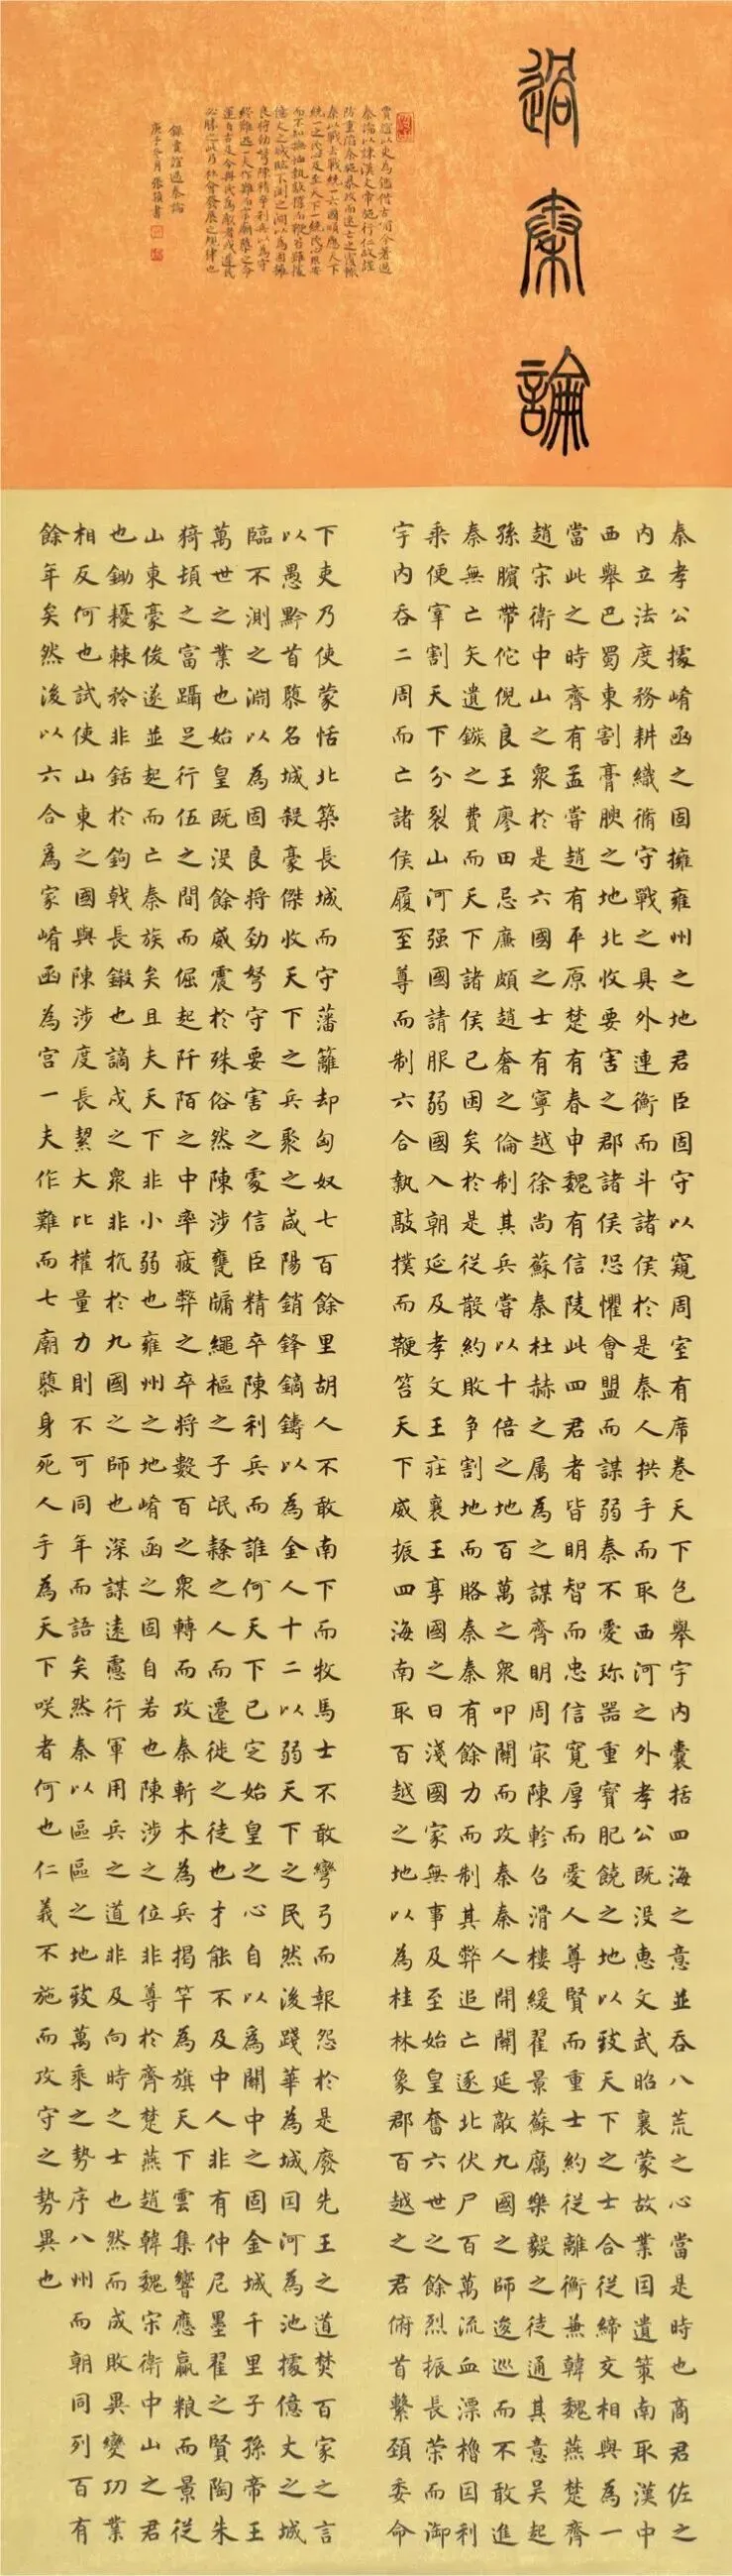 過秦論
秦孝公據崤函之固擁雍州之地君臣固守以窺周室有席卷天下包舉宇內囊括四海之意並吞八荒之心當是時也商君佐之
內立法度務耕織脩守戰之具外連衡而斗諸侯於是秦人拱手而取西河之外孝公既沒惠文武昭襄蒙故業因遺策南取漢中
西舉巴蜀東割膏腴之地北收要害之郡諸侯恐懼會盟而謀弱秦不愛珍器重寶肥饒之地以致天下之士合從締交相與為一
當此之時齊有孟嘗趙有平原楚有春申魏有信陵此四君者皆明智而忠信寬厚而愛人尊賢而重士約從離衡兼韓魏燕楚齊
趙宋衛中山之眾於是六國之士有寧越徐尚蘇秦杜赫之属為之謀齊明周冣陳軫召滑樓緩翟景蘇厲樂毅之徒通其意吳起
孫臏帶佗倪良王廖田忌廉頗趙奢之倫制其兵嘗以十倍之地百萬之眾叩關而攻秦秦人開關延敵九國之師逡巡而不敢進
秦無亡矢遺鏃之費而天下諸侯已困矣於是從散約敗爭割地而賂秦秦有餘力而制其弊追亡逐北伏尸百萬流血漂櫓因利
乘便宰割天下分裂山河强國請服弱國入朝延及孝文王莊襄王享國之日淺國家無事及至始皇奮六世之餘烈振長策而御
宇內吞二周而亡諸侯履至尊而制六合執敲撲而鞭笞天下威振四海南取百越之地以為桂林象郡百越之君俯首繫頸委命
下吏乃使蒙恬北築長城而守藩籬却匈奴七百餘里胡人不敢南下而牧馬士不敢彎弓而報怨於是廢先王之道焚百家之言
以愚黔首隳名城殺豪傑收天下之兵聚之咸陽銷鋒鏑鑄以為金人十二以弱天下之民然後踐華為城因河為池據億丈之城
臨不測之淵以為固良將勁弩守要害之處信臣精卒陳利兵而誰何天下已定始皇之心自以為關中之固金城千里子孫帝王
萬世之業也始皇既沒餘威震於殊俗然陳涉甕牖繩樞之子氓隸之人而遷徙之徒也才能不及中人非有仲尼墨翟之賢陶朱
猗頓之富躡足行伍之間而倔起阡陌之中率疲弊之卒將數百之眾轉而攻秦斬木為兵揭竿為旗天下雲集響應贏粮而景從
山東豪俊遂並起而亡秦族矣且夫天下非小弱也雍州之地崤函之固自若也陳涉之位非尊於齊楚燕趙韓魏宋衛中山之君
也鋤耰棘矜非銛於鉤戟長鎩也謫戍之眾非抗於九國之師也深謀遠慮行軍用兵之道非及向時之士也然而成敗異變功業
相反何也試使山東之國與陳涉度長絜大比權量力則不可同年而語矣然秦以區區之地致萬乘之勢序八州而朝同列百有
餘年矣然後以六合爲家崤函為宮一夫作難而七廟隳身死人手為天下咲者何也仁義不施而攻守之勢異也
賈誼以史為鑑借古喻今著過
秦論以諫漢文帝施行仁政謹
防重蹈秦施暴政而速亡之覆轍
秦以戰去戰統一六國順應天下
統一之民心及至天下一統民心思安
而不知撫恤執敲撲而鞭笞雖據
億丈之城臨不測之淵以為固擁
良將勁弩陳精卒利兵以為守
終難逃一夫作難而七廟隳之命
運自古及今與民為敵者或遲民
必勝之此乃社會發展之規律也
錄賈誼過秦論
庚子冬月張穎書